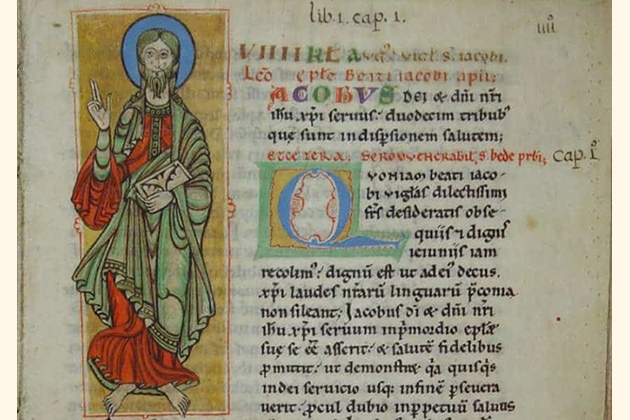 lib. 1. cap. 1.
iiij
VIIII KL̄A AVḠ. VIGĪL S̄. IACOBI.
Lēō ep̄lē Beati iacobi apl̄i;
JACOBVS Dei & dn̄i nr̄i
ih̄u xp̄i servus. duodecim tribub;
quę sunt in disp̄sionem salutem;
ET CETERA. Sermo venerabilis bede prb̄i; Cap. I.
QVONIAM beati iaco-
bi vigilias dilectissimi
fr̄s desideratis obse-
quiis & dignis
ieiuniis iam
recolim̄; dignū est ut ad ei⁹ decus.
xp̄i laudes nr̄arū linguarū p̄conia
non sileant; Iacobus dī & dn̄i nr̄i
ih̄u xp̄i servum in p̄mordio epl̄ę
suę se eē asserit. & salutē fidelibus
p̄mittit. ut demonst̄et q̄a quisq̄s
in dei servicio usq; in finē p̄seuera
verit. p̄cul dubio in p̄petuū saluus